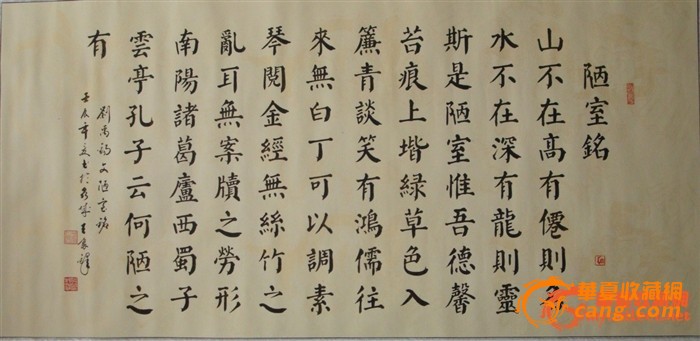 陋室銘
山不在高有僊則名
水不在深有龍則靈
斯是陋室惟吾德馨
苔痕上堦緑草色入
簾青談笑有鴻儒往
來無白丁可以調素
琴閱金經無絲竹之
亂耳無案牘之勞形
南陽諸葛廬西蜀子
雲亭孔子云何陋之
有
劉禹錫文陋室銘
壬辰年
華夏收藏網
cang.com